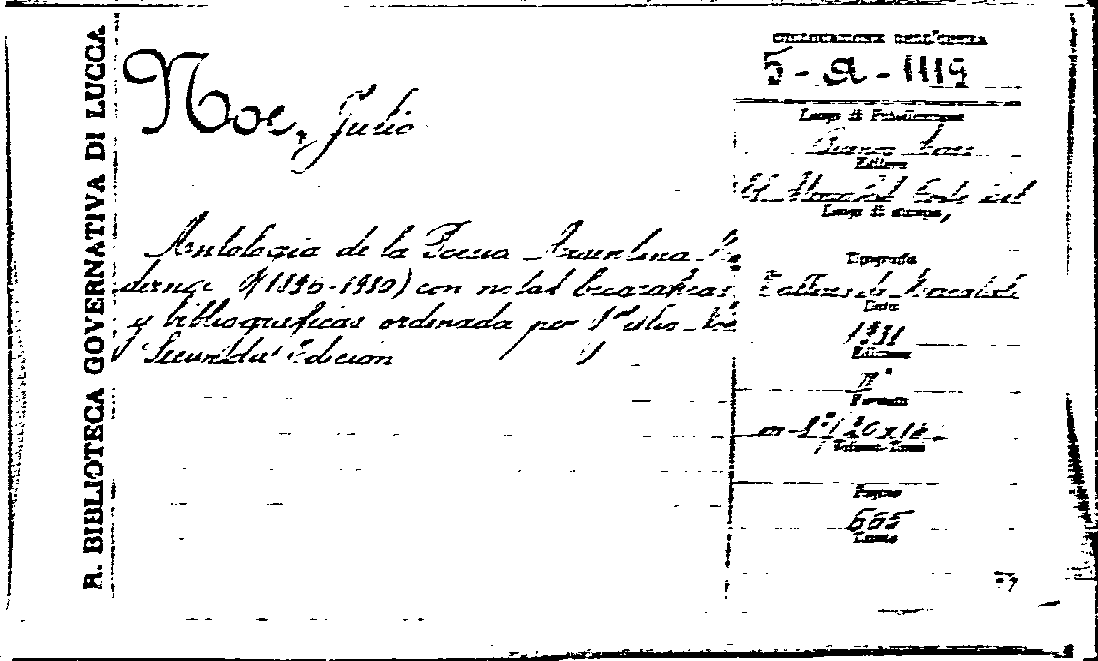 R. BIBLIOTECA GOVERNATIVA DI LUCCA
Noé, Julio
Antologia de la Poesia Argentina Mo
derna (1896-1930) con notas biograficas
y bibliograficas ordenada por Julio Noé
Segunda Edicion
COLLOCAZIONE DELL'OPERA
5-a-1119
Luogo di Pubblicazione
Buenos Aires
Editore
Luogo di stampa
Tipografia
Data
1931
Edizione
IIª
Formato
in-8°/20x14
Volume Tomo
Pagine
665